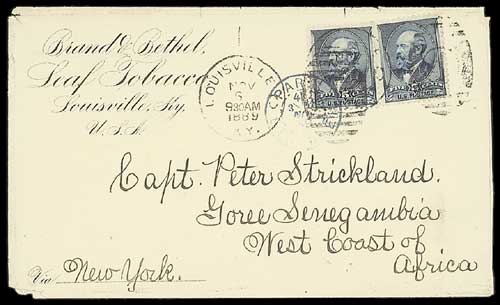 Brand & Bethel,
Leaf Tobacco
Louisville, Ky.
U.S.A
LOUISVILLE
NOV
6
930AM
1889
KY.
PAR
U.S. POSTAGE
Capt. Peter Strickland.
Goree Senegambia
West Coast of
Africa
Via New York.